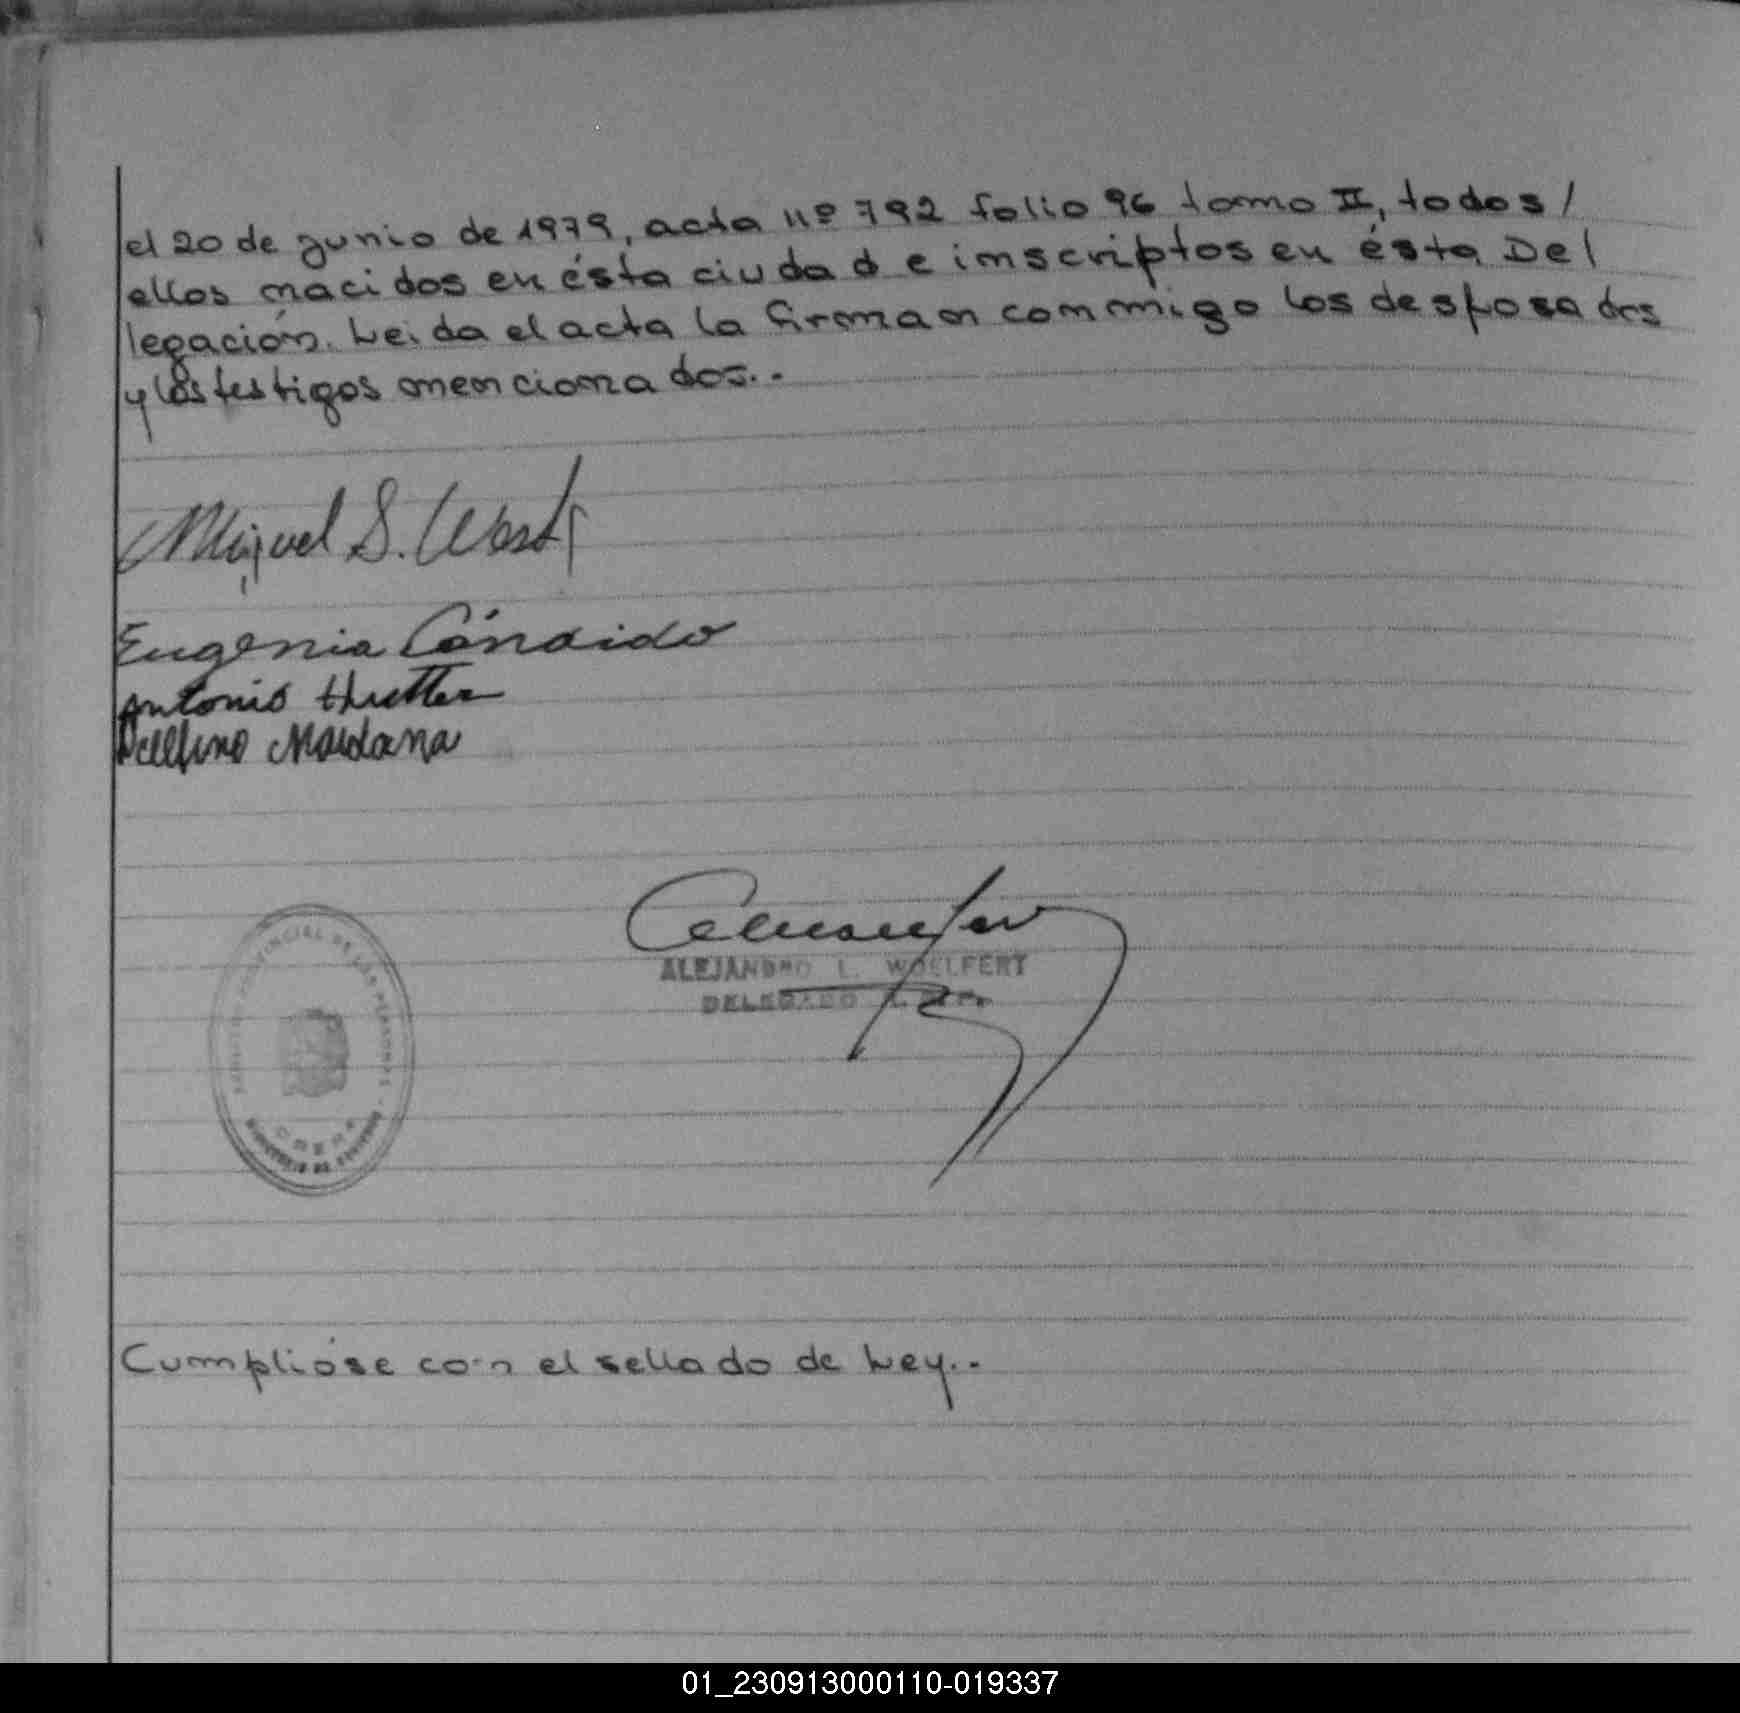 el 20 de junio de 1979, acta nº 792 folio 96 tomo II, todos /
ellos nacidos en ésta ciudad e inscriptos en ésta Del /
legación. Leida el acta la firman conmigo los desposados
y los testigos mencionados..-
Miguel S.
Eugenia Cándido
Antonio Hutter
Delfino Maidana
ALEJANDRO L. WOELFERT
DELEGADO
PROVINCIAL DE LAS PERSONAS
Cumplióse con el sellado de Ley..-
01_230913000110-019337